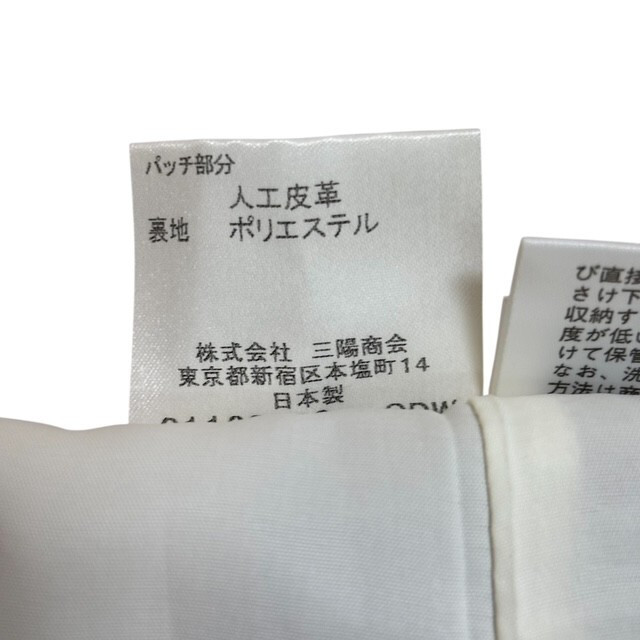 パッチ部分
人工皮革
裏地 ポリエステル
株式会社 三陽商会
東京都新宿区本塩町14
日本製
び直接
さけ下
収納す
度が低い
けて保管
なお、洗
方法は